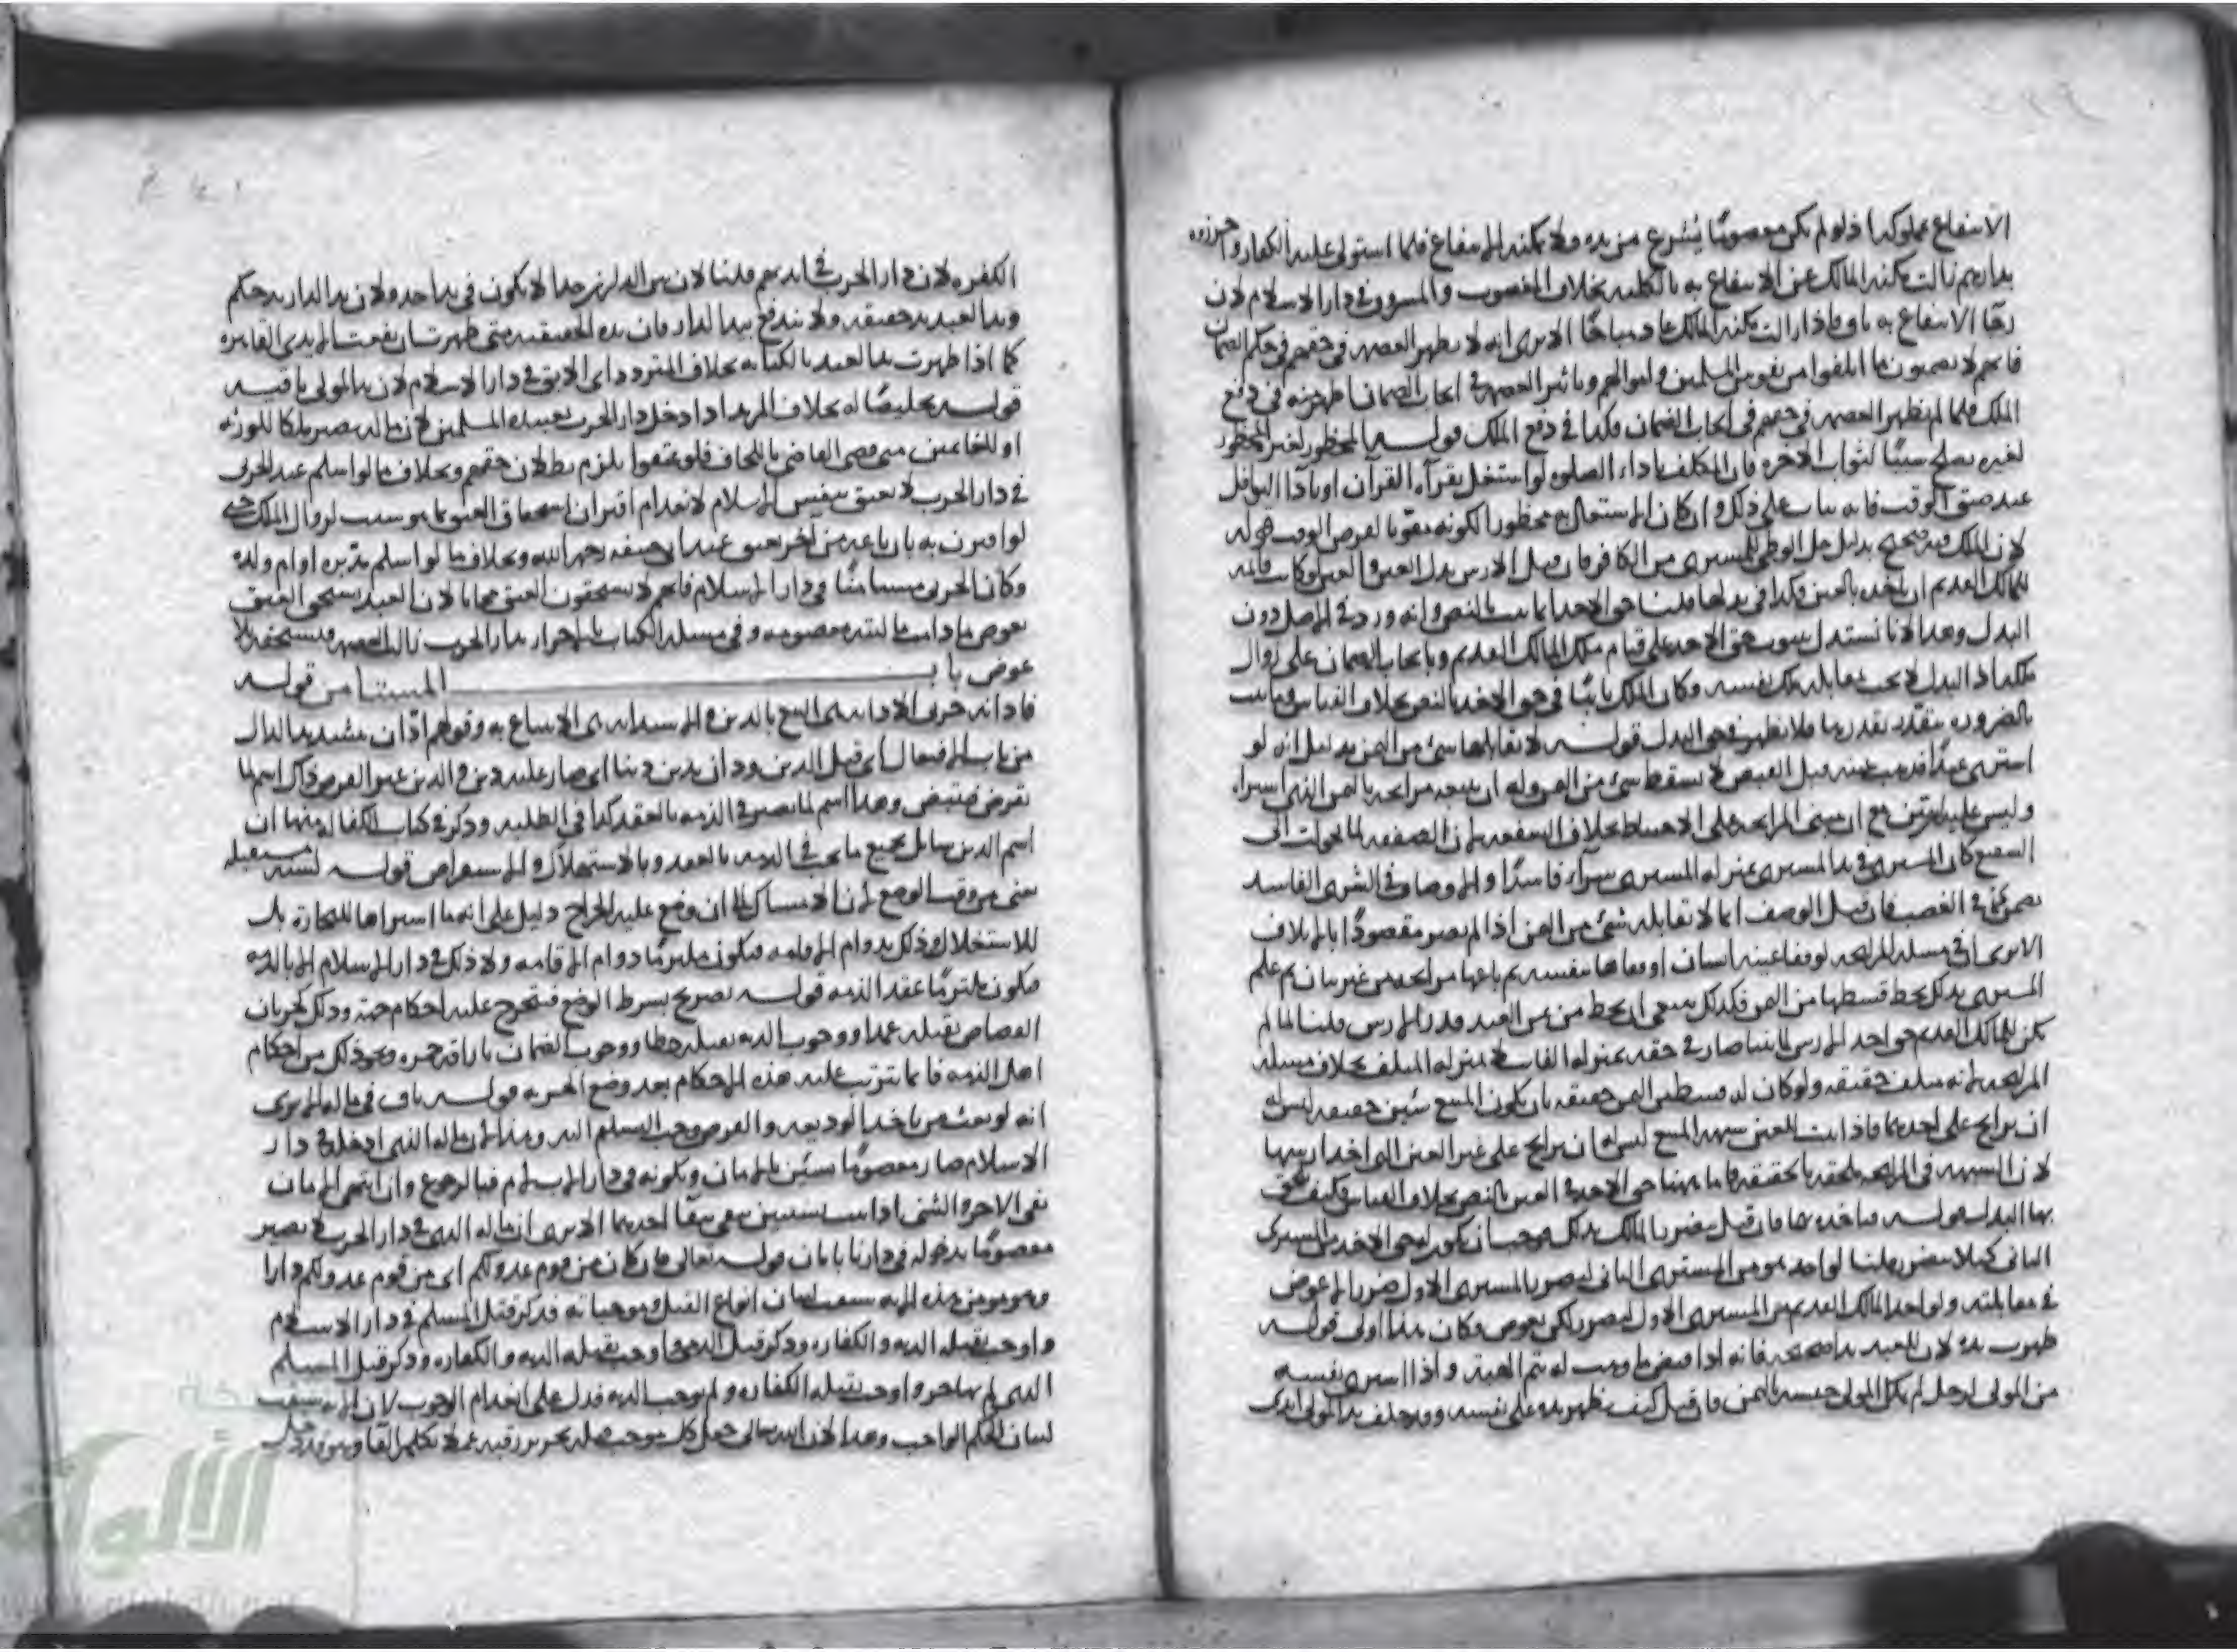 الانتفاع بملوكه اذ لو لم يكن معصومًا يُنتزع من يده ولا يمكنه الانتفاع فلما استولى عليه الكفار واحرزوه
بدارهم زالت مكنة المالك عن الانتفاع به بالكلية بخلاف المغصوب والمسروق في دار الاسلام لان
رجا الانتفاع به باق واذا زالت مكنة المالك عاد مباحًا الا يرى انه لا يظهر العصمة في حقهم في حكم الضمان
فانهم لا يضمنون ما اتلفوا من نفوس المسلمين واموالهم وتاثير العصمة في ايجاب الضمان اظهر منه في دفع
الملك فلما لم يظهر العصمة في حقهم في ايجاب الضمان فكذا في دفع الملك قوله المحظور لغيره المحظور
لغيره يصلح سببًا لثواب الاخرة فان المكلف باداء الصلوة لو اشتغل بقرآءة القرآن او باداء النوافل
عند ضيق الوقت فانه يثاب على ذلك وان كان الاشتغال به محظورا لكونه مفوتا لفرض الوقت قوله
لان الملك فيه صحيح بدليل حل الوطئ للمشترى من الكافر فان قيل الارش بدل العين والعين لو كانت قائمة
للمالك القديم ان ياخذه بالعين فكذا في بدلها قلنا حق الاخذ انما ثبت بالنص وانه ورد في الاصل دون
البدل وهذا لانا نستدل بثبوت حق الاخذ على قيام ملك المالك القديم وبايجاب الضمان على زوال
ملكه اذ البدل لا يجب بمقابلة ملك نفسه وكان الملك ثابتًا في حق الاخذ بالنص بخلاف القياس وما ثبت
بالضرورة يتقدر بقدرها فلا يظهر في حق البدل قوله لا يقابلها شئ من الثمن بدليل انه لو
اشترى عبدًا فذهبت عينه قبل القبض لا يسقط شئ من الثمن وله ان يبيعه مرابحة بالثمن الذى اشتراه
وليس عليه ان يبين مع ان مبنى المرابحة على الاحتياط بخلاف الشفعة لان الصفقة لما تحولت الى
الشفيع كان المشترى في يد المشترى بمنزلة المشترى شرآء فاسدًا والاوصاف في الشرى الفاسد
يضمن كما في الغصب فان قيل الوصف انما لا يقابله شئ من الثمن اذا لم يصر مقصودًا بالاتلاف
الا يرى ان في مسئلة المرابحة لو فقأ عينه انسان او فقأها بنفسه ثم باعها مرابحة من غير بيان ثم علم
المشترى بذلك يحط قسطها من الثمن فكذلك ينبغي ان يحط من ثمن العبد قدر الارش قلنا لما لم
يكن للمالك القديم حق اخذ الارش
المرابحة لانه متلف حقيقة ولو كان له قسط من الثمن حقيقة بان يكون المبيع شيئين حقيقة ليس له
ان يرابح على احدهما فاذا
لان الشبهة في المرابحة ملحقة بالحقيقة فاما ههنا حق الاخذ في العين بالنص بخلاف القياس فكيف يلحق
بها البدل قوله فياخذه بها فان قيل يتضرر بالمالك بذلك فوجب ان يكون له حق الاخذ من المشترى
الثانى كيلا يتضرر قلنا لو اخذه من المشترى الثانى ليضرر المشترى الاول ضررا بلا عوض
في مقابلته ولو اخذ المالك القديم من المشترى الاول ليضرر لكن بعوض فكان هذا اولى قوله
ظهرت يده لان للعبد يدا صحيحة فانه اذا قبض ما وهب له يتم الهبة واذا اشترى نفسه
من المولى لرجل لم يكن للمولى حبسه بالثمن فان قيل كيف يظهر يده على نفسه وقد خلف يد المولى ايدى
الكفرة لان دار الحرب في ايديهم قلنا لان بين الدارين حدا لا يكون في يد احد ولان يد الدار يد حكم
ويد العبد يد حقيقة ولا يندفع بيد الدار فان يده الحقيقية متى ظهرت اندفعت الايدى القاهرة
كما اذا ظهرت يد العبد بالكتابة بخلاف المتردد اى الابق في دار الاسلام لان يد المولى باقية
قوله تخليصًا له بخلاف المرتد اذا دخل دار الحرب بعبيده المسلمين لان ماله يصير ملكا للورثة
او للغانمين متى قضى القاضي باللحاق فلو عتقوا يلزم بطلان حقهم وبخلاف ما لو اسلم عبد الحربى
في دار الحرب لا يعتق بنفس الاسلام لانعدام اقتران استحقاق العتق بما هو سبب لزوال الملك حتى
لو اقترن به بان باعه من اخر يعتق عند ابى حنيفة رحمه الله وبخلاف ما لو اسلم مدبره او ام ولده
وكان الحربى مستأمنًا في دار الاسلام فانهم لا يستحقون العتق مجانا لان العبد يستحق العتق
بعوض ما دامت ماليته معصومة وفي مسئلة الكتاب بالاحراز بدار الحرب زالت العصمة فيستحقه بلا
عوض باب المستامن قوله
فادانه حربى الادانة هى البيع بالدين والاستدانة هى الابتياع به وقولهم ادّان بتشديد الدال
من باب الافتعال اى قبل الدين ودان يدين دينا اى صار عليه دين والدين غير القرض ذاك اسم لما
يقرض فيقبض وهذا اسم لما يصير في الذمة بالعقد كذا في الطلبة وذكر في كتاب الكفالة منها ان
اسم الدين شامل يجمع ما يجب في الذمة بالعقد وبالاستهلاك والاستقراض قوله لسنة مستقبلة
يعنى من وقت الوضع لان الامساك الى ان وضع عليه الخراج دليل على انه ما اشتراها للتجارة بل
للاستغلال وذلك بدوام الاقامة فيكون ملتزمًا دوام الاقامة ولا ذلك في دار الاسلام الا بالذمة
فيكون ملتزمًا عقد الذمة قوله تصريح بشرط الوضع فيتخرج عليه احكام جمة وذلك كجريان
القصاص بقتله عمدا ووجوب الدية بقتله خطا ووجوب الضمان باراقة خمره ونحو ذلك من احكام
اهل الذمة فانما يترتب عليه هذه الاحكام بعد وضع الخراج قوله باق في ماله الا يرى
انه لو بعث من ياخذ الوديعة والقرض وجب التسليم اليه وهذا لان ماله الذى ادخله في دار
الاسلام صار معصومًا بشيئين بالامان وبكونه في دار الاسلام فبالرجوع وان انتهى الامان
بقى الاخر والشئ اذا ثبت بشيئين يبقى ببقآء احدهما الا يرى ان ماله الذى في دار الحرب لا يصير
معصومًا بدخوله في دارنا بامان قوله تعالى فان كان من قوم عدو لكم اى من قوم عدو لكم دارا
وهو مومن هذه الاية سيقت لبيان انواع القتل وموجباته فذكر قتل المسلم في دار الاسلام
واوجب بقتله الدية والكفارة وذكر قتل الذمى واوجب بقتله الدية والكفارة وذكر قتل المسلم
الذى لم يهاجر واوجب بقتله الكفارة ولم يوجب الدية فدل على انعدام الوجوب لان الاية سيقت
لبيان الحكم الواجب وهذا لان الله تعالى جعل كل موجب قتله تحرير رقبة